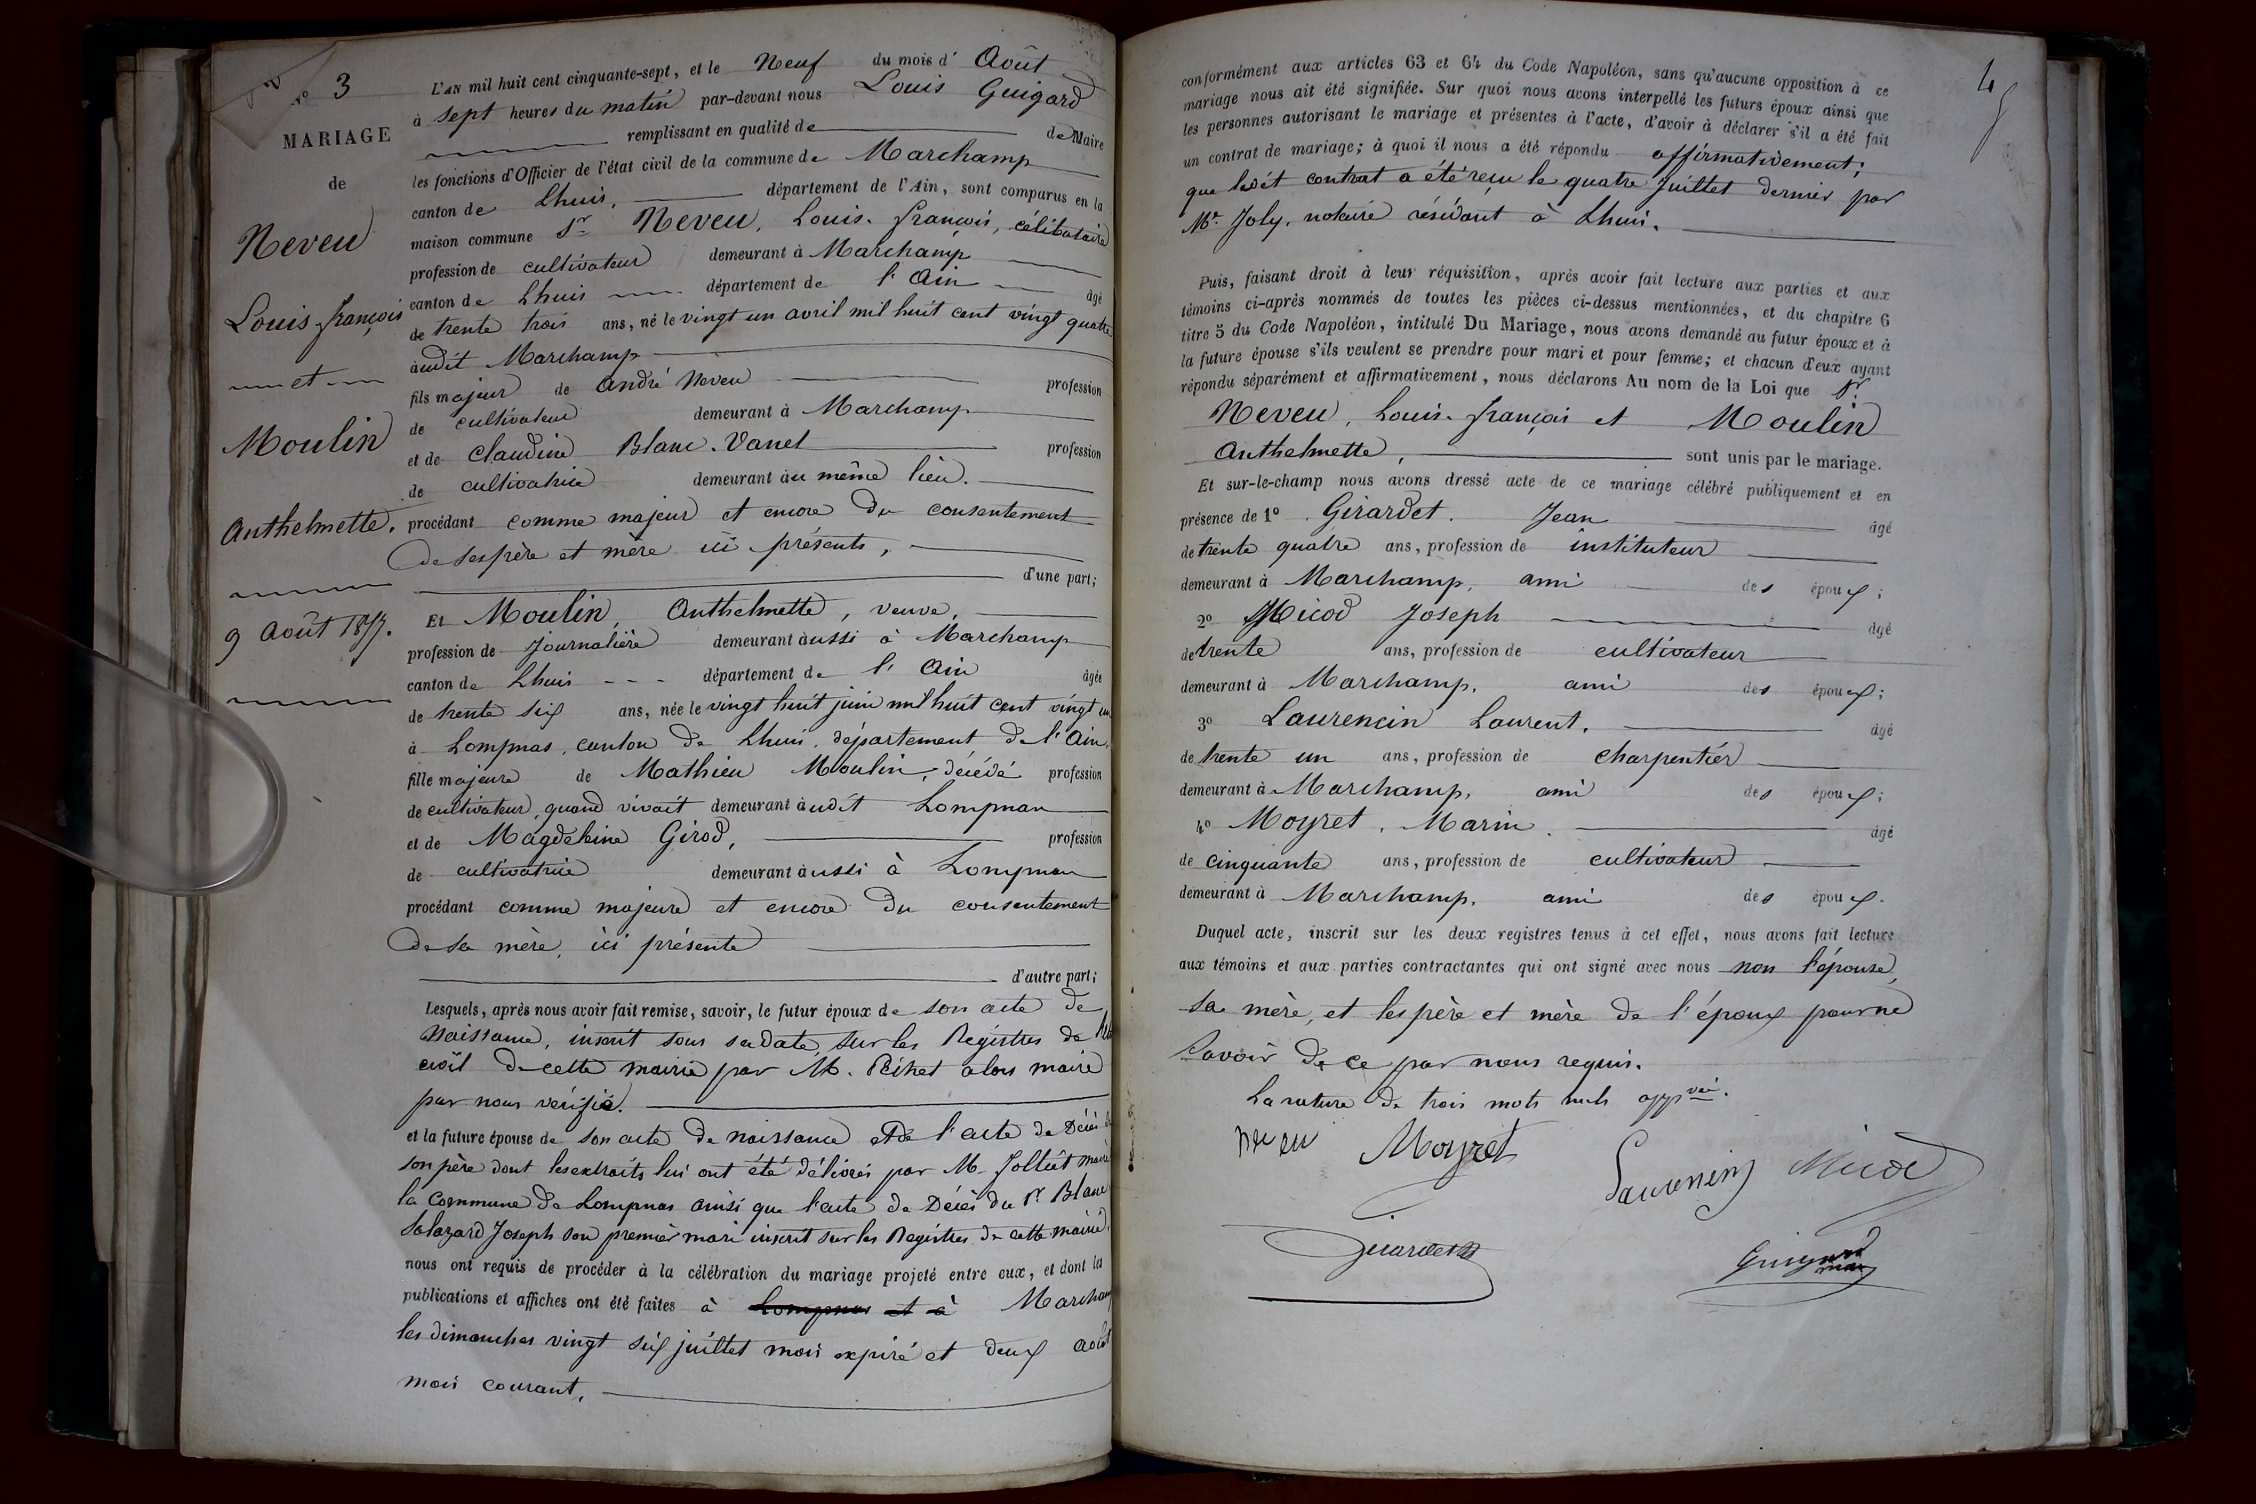 N° 3
MARIAGE
de
Neveu
Louis françois
et
Moulin
Anthelmette.
9 Août 1857.
L'AN mil huit cent cinquante-sept, et le Neuf du mois d' Août
à sept heures du matin par-devant nous Louis Guigard
remplissant en qualité de de Maire
les fonctions d'Officier de l'état civil de la commune de Marchamp
canton de Lhuis, département de l'Ain, sont comparus en la
maison commune Sr Neveu, Louis-françois, célibataire
profession de cultivateur demeurant à Marchamp
canton de Lhuis département de l'Ain âgé
de trente trois ans, né le vingt un avril mil huit cent vingt quatre
audit Marchamp
fils majeur de André Neveu profession
de cultivateur demeurant à Marchamp
et de Claudine Blanc-Vanet profession
de cultivatrice demeurant au même lieu.
procédant comme majeur et encore du consentement
de ses père et mère ici présents,
d'une part;
Et Moulin, Anthelmette, veuve,
profession de journalière demeurant aussi à Marchamp
canton de Lhuis département de l'Ain âgée
de trente six ans, née le vingt huit juin mil huit cent vingt un
à Lompnas, canton de Lhuis, département de l'Ain,
fille majeure de Mathieu Moulin, décédé profession
de cultivateur, quand vivait demeurant audit Lompnas
et de Magdeleine Girod, profession
de cultivatrice demeurant aussi à Lompnas
procédant comme majeure et encore du consentement
de sa mère, ici présente
d'autre part;
Lesquels, après nous avoir fait remise, savoir, le futur époux de son acte de
Naissance, inscrit sous sa date sur les Régistres de l'état
civil de cette mairie par M. alors maire
par nous vérifié.
et la future épouse de son acte de naissance et de l'acte de Décès de
son père dont les extraits lui ont été délivrés par M. maire
la Commune de Lompnas ainsi que l'acte de Décès du Sr Blanc
Salazard Joseph son premier mari inscrit sur les Régistres de cette mairie.
nous ont requis de procéder à la célébration du mariage projeté entre eux, et dont les
publications et affiches ont été faites à Lompnas et à Marchamp
les dimanches vingt six juillet mois expiré et deux août
mois courant.
4
conformément aux articles 63 et 64 du Code Napoléon, sans qu'aucune opposition à ce
mariage nous ait été signifiée. Sur quoi nous avons interpellé les futurs époux ainsi que
les personnes autorisant le mariage et présentes à l'acte, d'avoir à déclarer s'il a été fait
un contrat de mariage; à quoi il nous a été répondu affirmativement;
que ledit contrat a été reçu le quatre juillet dernier par
Me Joly, notaire résidant à Lhuis.
Puis, faisant droit à leur réquisition, après avoir fait lecture aux parties et aux
témoins ci-après nommés de toutes les pièces ci-dessus mentionnées, et du chapitre 6
titre 5 du Code Napoléon, intitulé Du Mariage, nous avons demandé au futur époux et à
la future épouse s'ils veulent se prendre pour mari et pour femme; et chacun d'eux ayant
répondu séparément et affirmativement, nous déclarons Au nom de la Loi que Sr
Neveu, Louis-françois et Moulin
Anthelmette, sont unis par le mariage.
Et sur-le-champ nous avons dressé acte de ce mariage célébré publiquement et en
présence de 1° Girardet. Jean âgé
de trente quatre ans, profession de instituteur
demeurant à Marchamp, ami des époux;
2° Micod Joseph âgé
de trente ans, profession de cultivateur
demeurant à Marchamp, ami des époux;
3° Laurencin Laurent. âgé
de trente un ans, profession de charpentier
demeurant à Marchamp, ami des époux;
4° Moyret, Marin. âgé
de cinquante ans, profession de cultivateur
demeurant à Marchamp, ami des époux.
Duquel acte, inscrit sur les deux registres tenus à cet effet, nous avons fait lecture
aux témoins et aux parties contractantes qui ont signé avec nous non l'épouse,
sa mère, et les père et mère de l'époux pour ne
savoir de ce par nous requis.
La rature de trois mots nuls appvée.
neveu Moyret Laurencin Micod
Girardet Guigard